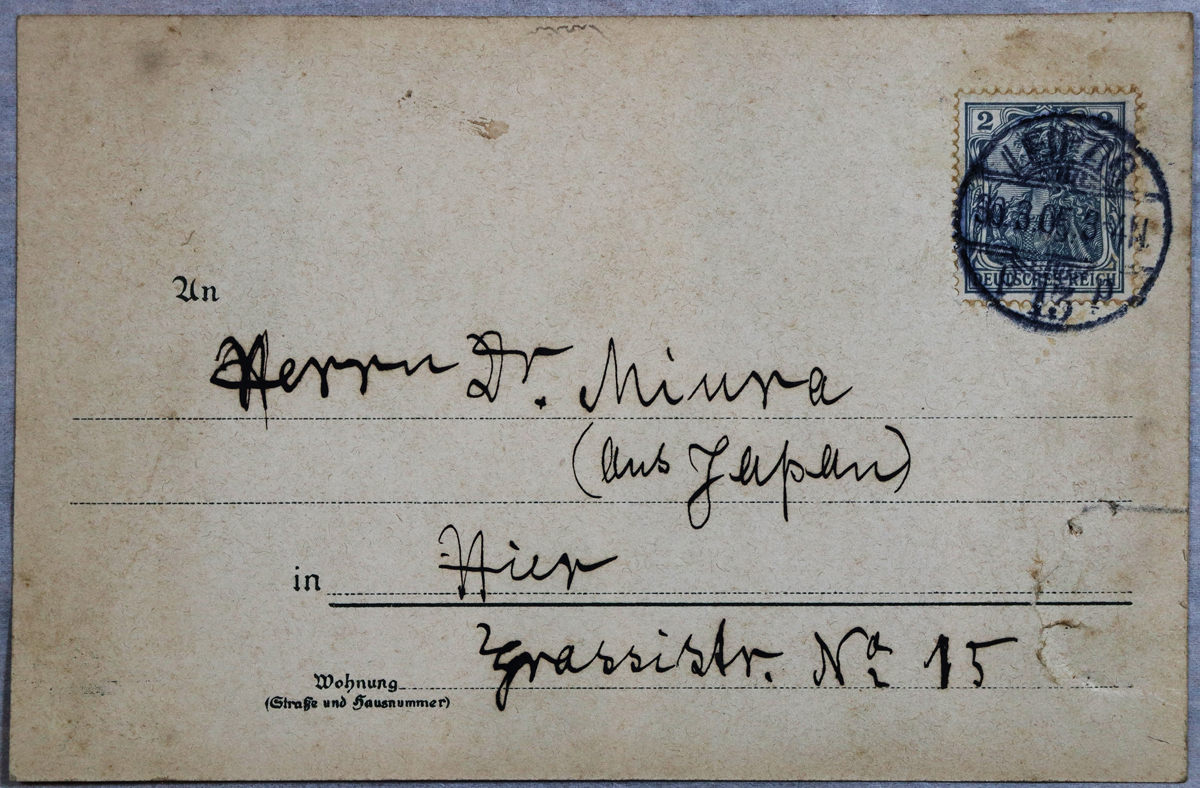 2 2
LEIPZIG
30.3.05.3-4N
DEUTSCHES REICH
13
An
Herrn Dr. Miura
(aus Japan)
in Hier
Grassistr. No 15
Wohnung
(Straße und Hausnummer)